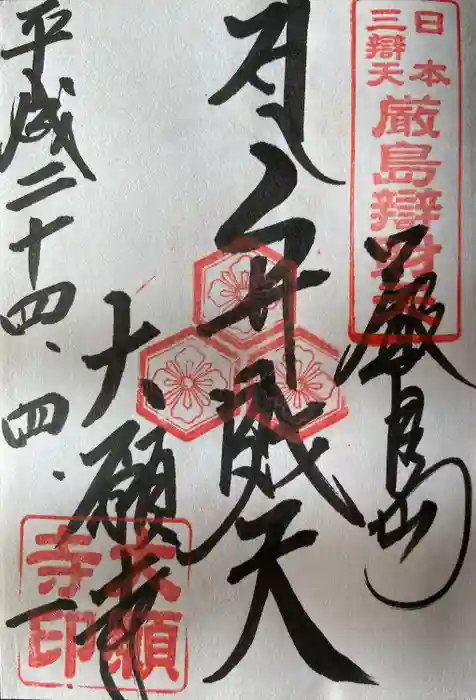 日本
三辯天
厳島辯財天
厳島山
弁戝天
大願寺
平成二十四、四、一
大願
寺印